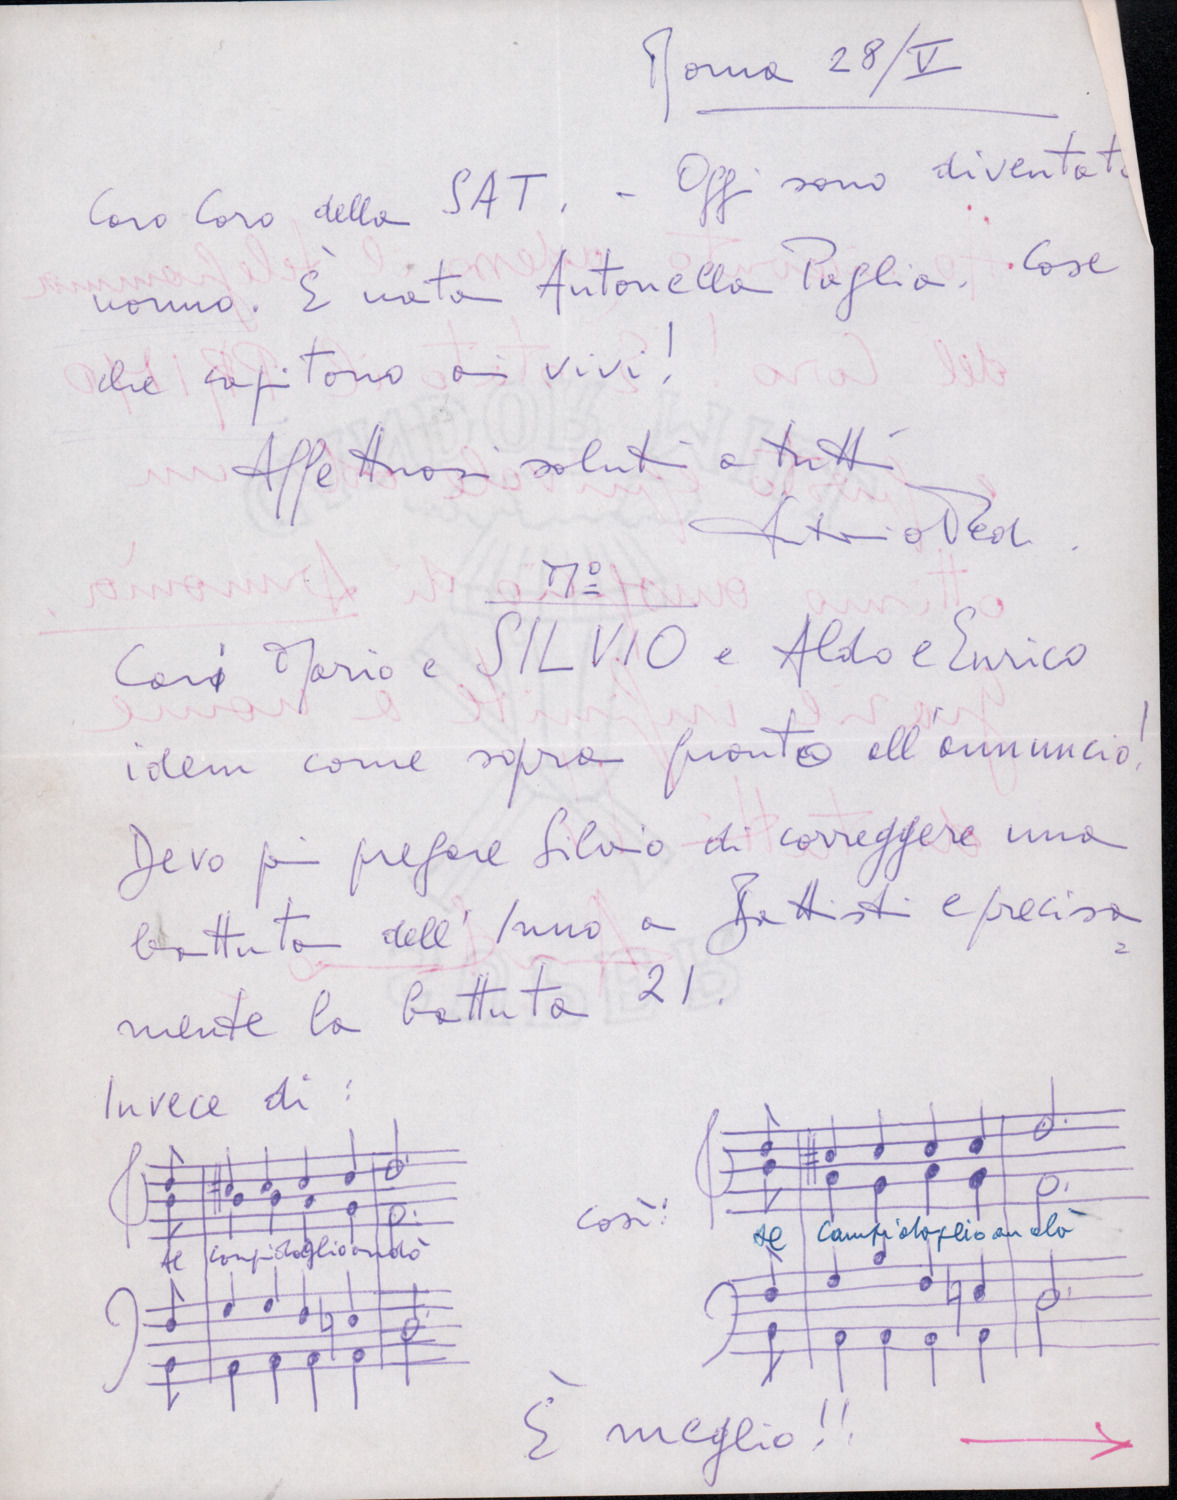 Roma 28/V
Caro Coro della SAT. - Oggi sono diventato
nonno. È nata Antonella Paglia. Cose
che capitano ai vivi!
Affettuosi saluti a tutti
Antonio Ped.
M°
Cari Mario e SILVIO e Aldo e Enrico
idem come sopra quanto all'annuncio!
Devo poi pregare Silvio di correggere una
battuta dell'Inno a Battisti e precisa=
mente la battuta 21.
Invece di:
così:
se campidoglio andò
se campidoglio andò
È meglio!!